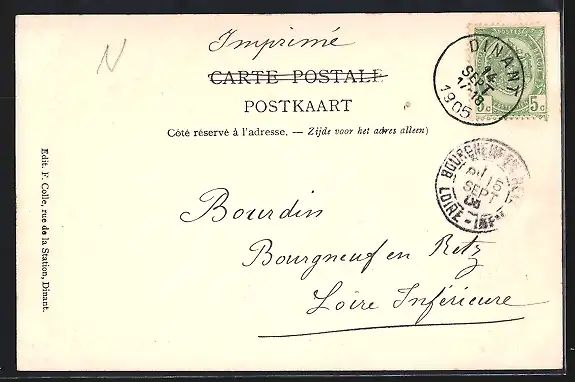 N
Imprimé
CARTE POSTALE
POSTKAART
Côté réservé à l'adresse. — Zijde voor het adres alleen)
DINANT
14
SEPT
17-18
1905
5c
BOURGNEUF-EN-
15
SEPT
05
LOIRE-INF
Bourdin
Bourgneuf en Retz
Loire Inférieure
Edit. F. Colle, rue de la Station, Dinant.